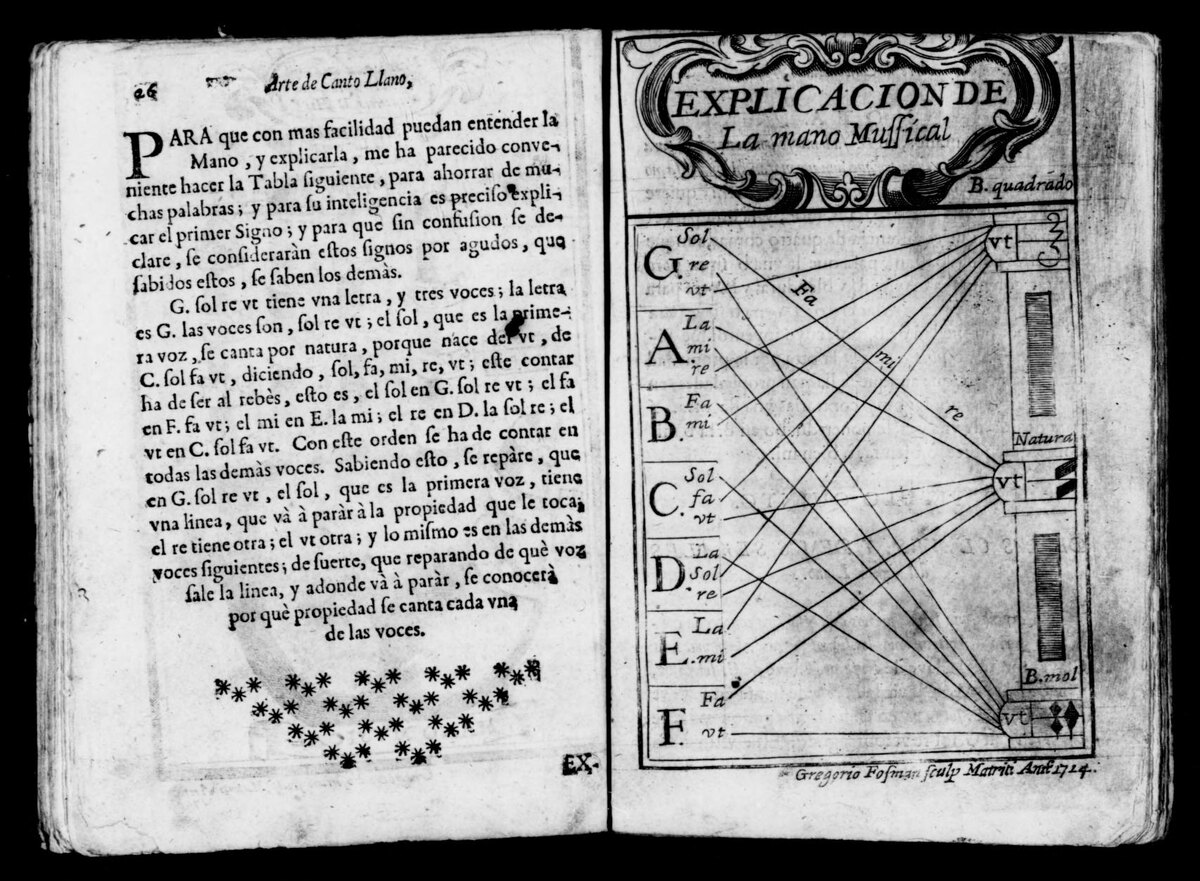 26
Arte de Canto Llano,
PARA que con mas facilidad puedan entender la
Mano, y explicarla, me ha parecido conve-
niente hacer la Tabla siguiente, para ahorrar de mu-
chas palabras; y para su inteligencia es preciso expli-
car el primer Signo; y para que sin confusion se de-
clare, se consideraràn estos signos por agudos, que
sabidos estos, se saben los demàs.
G. sol re vt tiene vna letra, y tres voces; la letra
es G. las voces son, sol re vt; el sol, que es la prime-
ra voz, se canta por natura, porque nace del vt, de
C. sol fa vt, diciendo, sol, fa, mi, re, vt; este contar
ha de ser al rebès, esto es, el sol en G. sol re vt; el fa
en F. fa vt; el mi en E. la mi; el re en D. la sol re; el
vt en C. sol fa vt. Con este orden se ha de contar en
todas las demàs voces. Sabiendo esto, se repàre, que
en G. sol re vt, el sol, que es la primera voz, tiene
vna linea, que và à paràr à la propiedad que le toca;
el re tiene otra; el vt otra; y lo mismo es en las demàs
voces siguientes; de suerte, que reparando de què voz
sale la linea, y adonde và à paràr, se conocerà
por què propiedad se canta cada vna
de las voces.
EX-
EXPLICACION DE
La mano Mussical
B. quadrado
G. Sol
re
vt
A. La
mi
re
B. Fa
mi
C. Sol
fa
vt
D. La
Sol
re
E. La
mi
F. Fa
vt
Fa
mi
re
vt
Natura
vt
B. mol
vt
Gregorio Fosman sculp Matriti 1724.